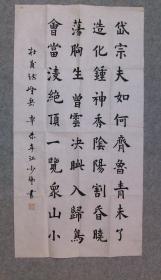 岱宗夫如何齊魯青未了
造化鍾神秀陰陽割昏曉
蕩胸生曾雲決眥入歸鳥
會當淩絕頂一覽衆山小
杜甫詩望岳 辛未年江少書